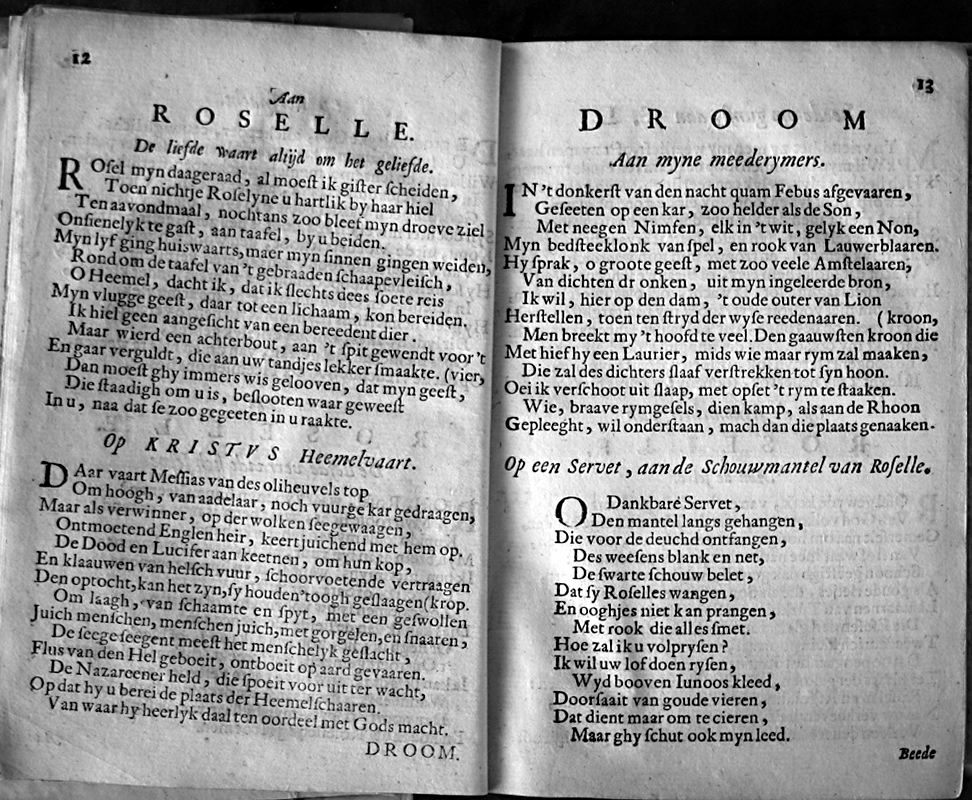 12
Aan
ROSELLE.
De liefde waart altijd om het geliefde.
ROsel myn daageraad, al moest ik gister scheiden,
Toen nichtje Roselyne u hartlik by haar hiel
Ten aavondmaal, nochtans zoo bleef myn droeve ziel
Onsienelyk te gast, aan taafel, by u beiden.
Myn lyf ging huiswaarts, maer myn sinnen gingen weiden,
Rond om de taafel van 't gebraaden schaapevleisch,
O Heemel, dacht ik, dat ik slechts dees soete reis
Myn vlugge geest, daar tot een lichaam, kon bereiden.
Ik hiel geen aangesicht van een bereedent dier.
Maar wierd een achterbout, aan 't spit gewendt voor't
En gaar verguldt, die aan uw tandjes lekker smaakte. (vier,
Dan moest ghy immers wis gelooven, dat myn geest,
Die staadigh om u is, beslooten waar geweest
In u, naa dat se zoo gegeeten in u raakte.
Op KRISTVS Heemelvaart.
DAar vaart Messias van des oliheuvels top
Om hoogh, van aadelaar, noch vuurge kar gedraagen,
Maar als verwinner, op der wolken seegewaagen,
Ontmoetend Englen heir, keert juichend met hem op.
De Dood en Lucifer aan keetnen, om hun kop,
En klaauwen van helsch vuur, schoorvoetende vertraagen
Den optocht, kan het zyn, sy houden 'toogh geslaagen (krop.
Om laagh, van schaamte en spyt, met een geswollen
Juich menschen, menschen juich, met gorgelen, en snaaren,
De seege seegent meest het menschelyk geslacht,
Flus van den Hel geboeit, ontboeit op aard gevaaren.
De Nazareener held, die spoeit voor uit ter wacht,
Op dat hy u berei de plaats der Heemelschaaren.
Van waar hy heerlyk daal ten oordeel met Gods macht.
DROOM.
13
DROOM
Aan myne meederymers.
IN 't donkerst van den nacht quam Febus afgevaaren,
Geseeten op een kar, zoo helder als de Son,
Met neegen Nimfen, elk in 't wit, gelyk een Non,
Myn bedsteeklonk van spel, en rook van Lauwerblaaren.
Hy sprak, o groote geest, met zoo veele Amstelaaren,
Van dichten dronken, uit myn ingeleerde bron,
Ik wil, hier op den dam, 't oude outer van Lion
Herstellen, toen ten stryd der wyse reedenaaren. (kroon,
Men breekt my 't hoofd te veel. Den gaauwsten kroon die
Met hief hy een Laurier, mids wie maar rym zal maaken,
Die zal des dichters slaaf verstrekken tot syn hoon.
Oei ik verschoot uit slaap, met opset 't rym te staaken.
Wie, braave rymgesels, dien kamp, als aan de Rhoon
Gepleeght, wil onderstaan, mach dan die plaats genaaken.
Op een Servet, aan de Schouwmantel van Roselle.
O Dankbare Servet,
Den mantel langs gehangen,
Die voor de deuchd ontfangen,
Des weesens blank en net,
De swarte schouw belet,
Dat sy Roselles wangen,
En ooghjes niet kan prangen,
Met rook die alles smet.
Hoe zal ik u volprysen?
Ik wil uw lof doen rysen,
Wyd booven Iunoos kleed,
Doorsaait van goude vieren,
Dat dient maar om te cieren,
Maar ghy schut ook myn leed.
Beede